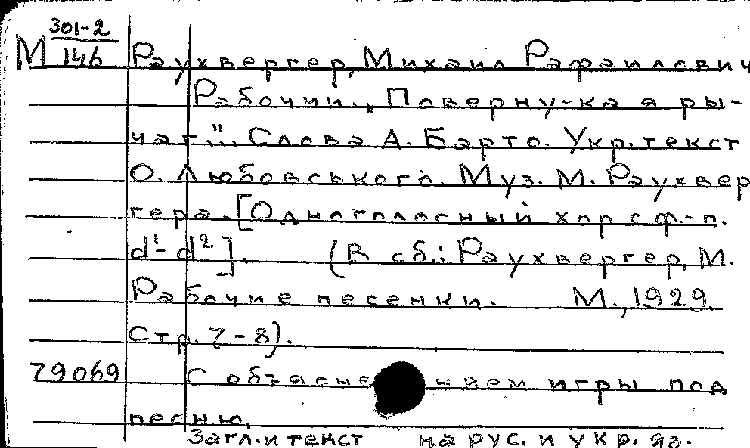 301-2
М 146 Раухвергер, Михаил Рафаилович
Рабочий. „Поверну-ка я ры-
чаг". Слова А. Барто. Укр. текст
О. Любовського. Муз. М. Раухвер
гера. [Одноголасный хор с ф.-п.
d¹-d²]. (В сб.: Раухвергер, М.
Рабочие песенки. М., 1929.
Стр. 7-8).
79069 С объяснением игры под
песню.
Загл. и текст на рус. и укр. яз.